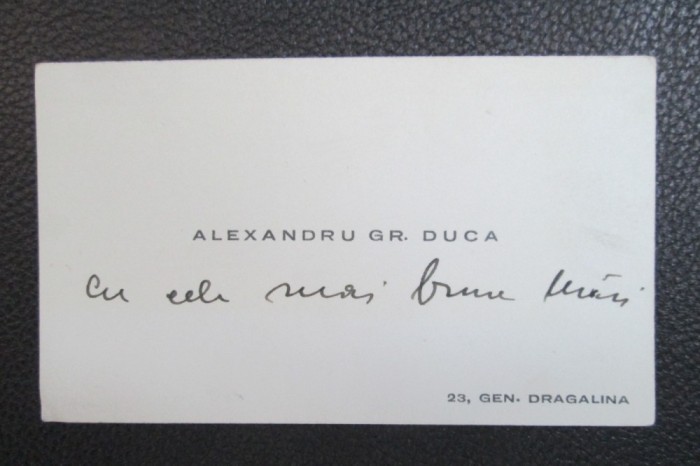 ALEXANDRU GR. DUCA
cu cele mai bune urări
23, GEN. DRAGALINA